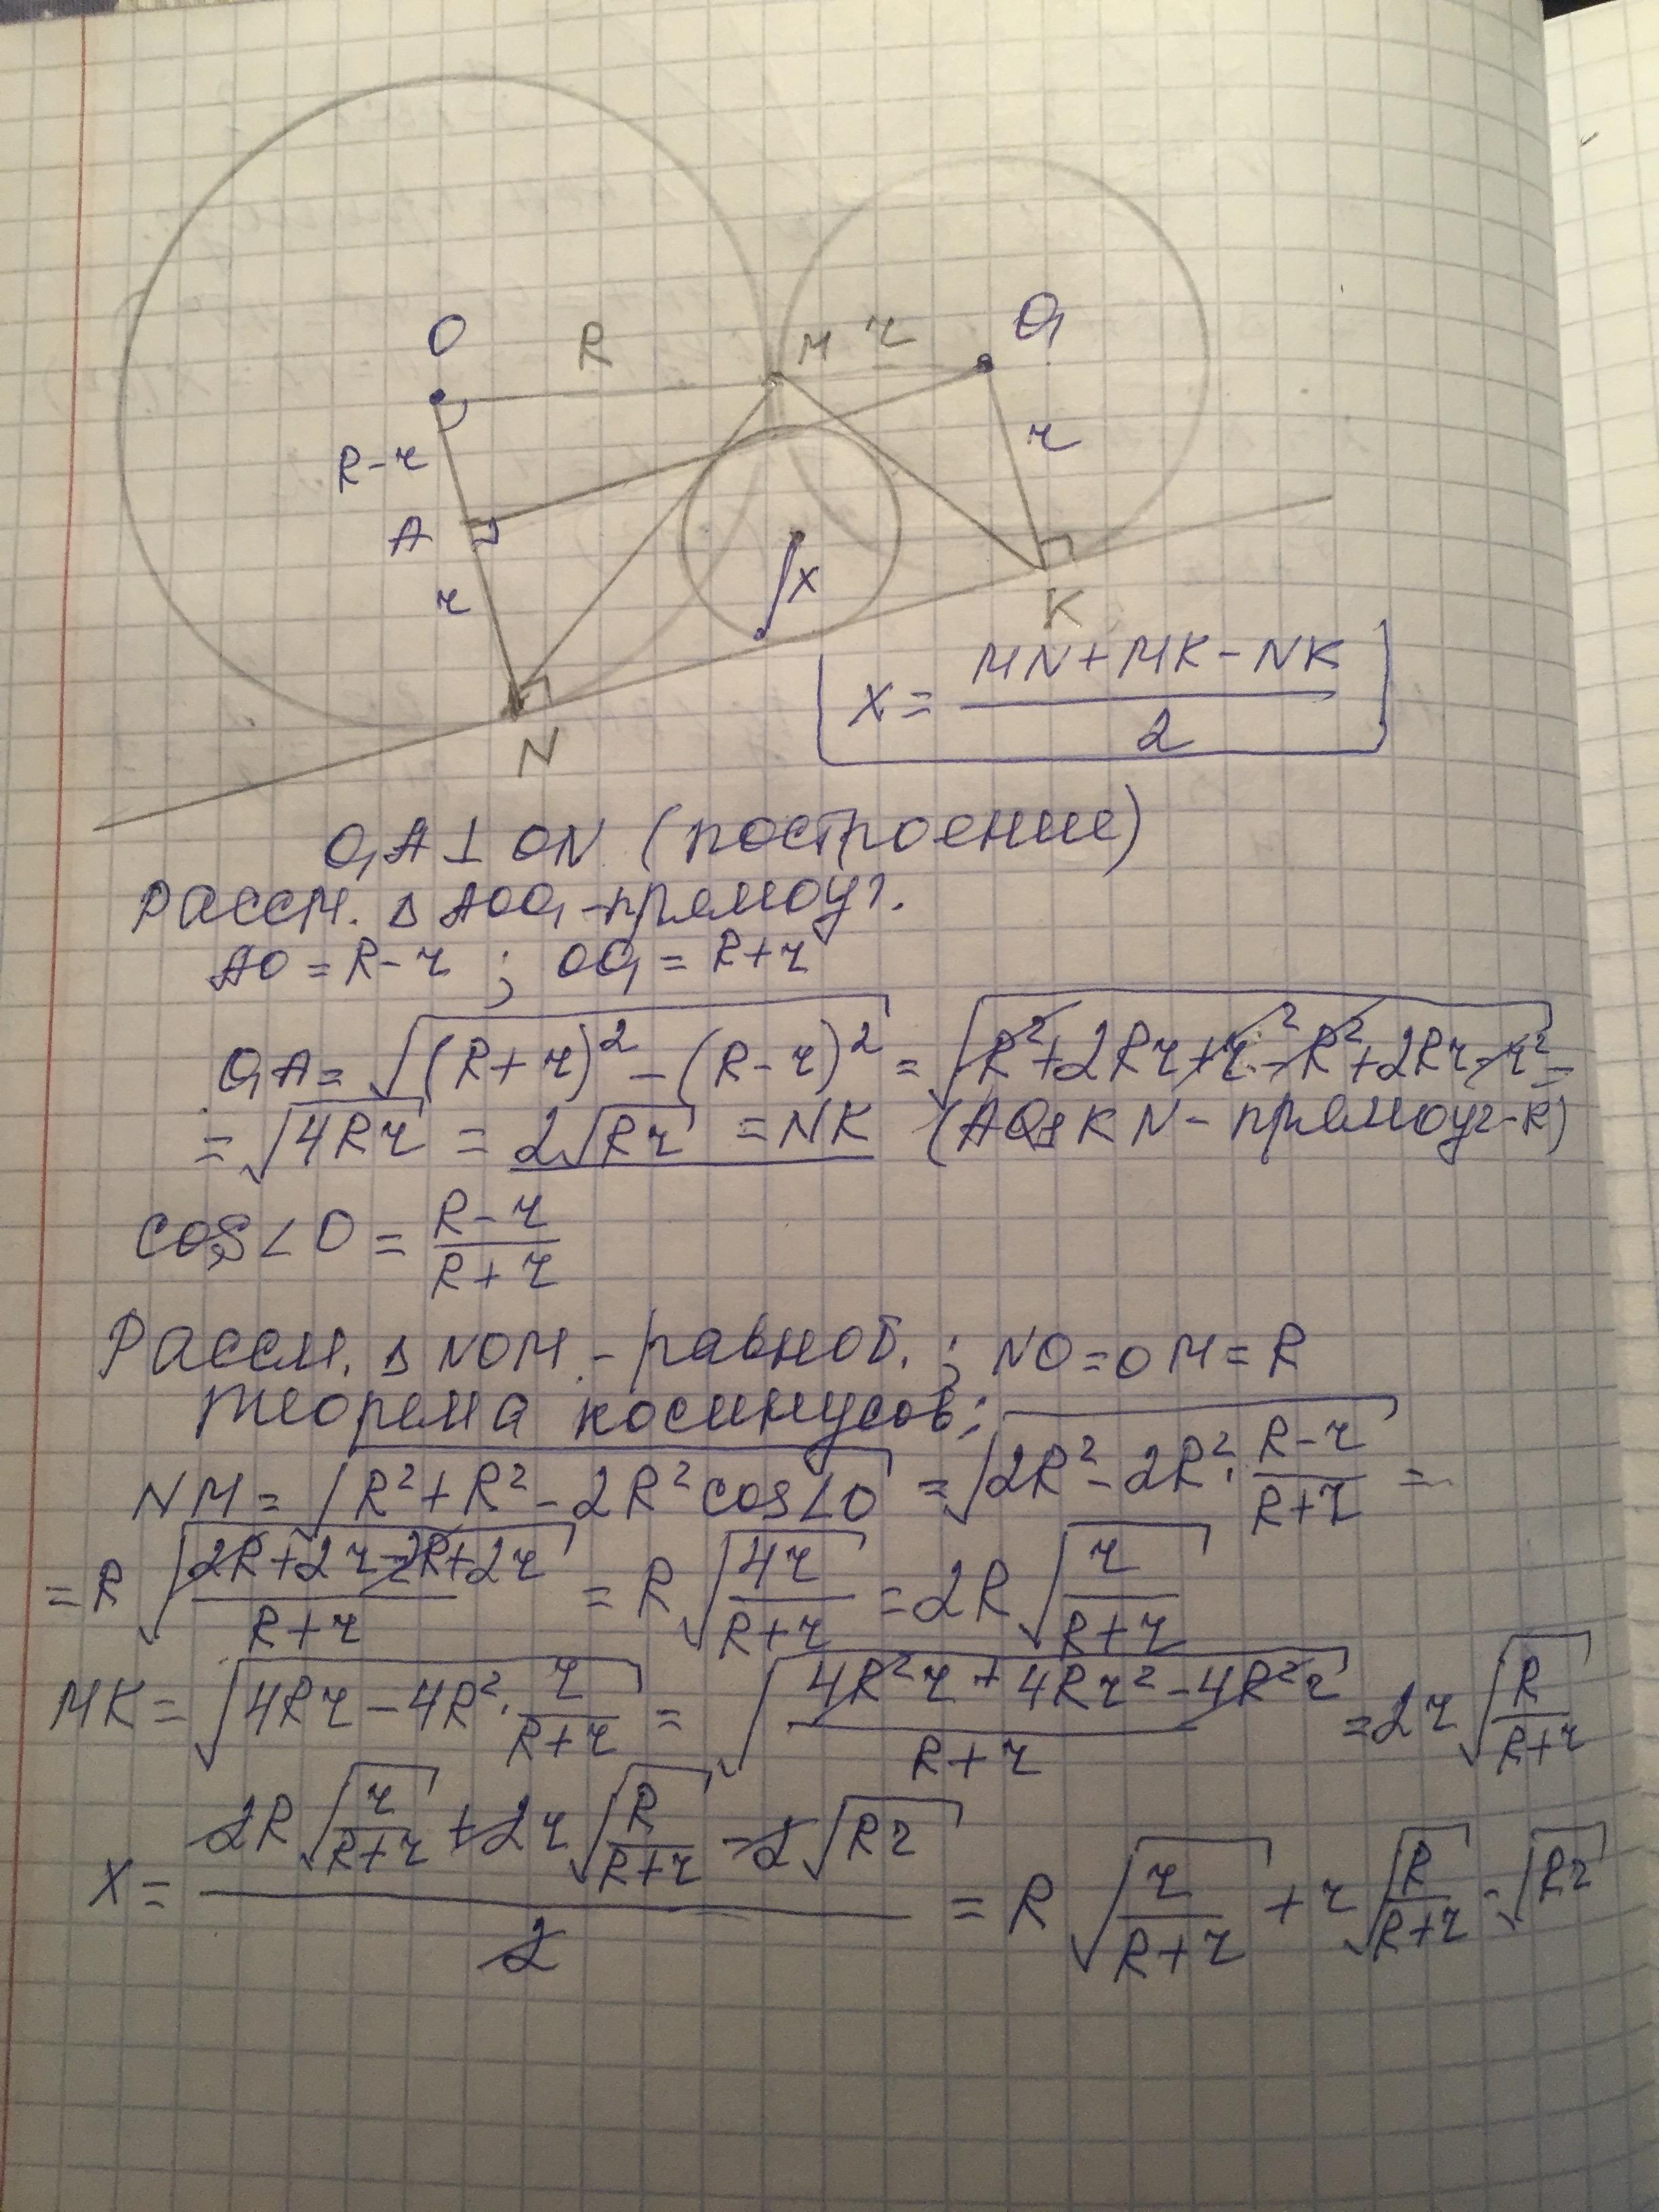 O
R
M
r
O₁
R-r
r
A
r
x
K
N
x = (MN+MK-NK)/2
O₁A ⊥ ON (построение)
Рассм. Δ AOO₁ - прямоуг.
AO = R-r ; OO₁ = R+r
O₁A = √((R+r)² - (R-r)²) = √(R²+2Rr+r²-R²+2Rr-r²) =
= √(4Rr) = 2√(Rr) = NK (AO₁KN - прямоуг-к)
cos∠O = (R-r)/(R+r)
Рассм. Δ NOM - равноб. ; NO=OM=R
теорема косинусов:
NM = √(R²+R²-2R²cos∠O) = √(2R²-2R²·(R-r)/(R+r)) =
= R√((2R+2r-2R+2r)/(R+r)) = R√(4r/(R+r)) = 2R√(r/(R+r))
MK = √(4Rr-4R²·r/(R+r)) = √((4R²r+4Rr²-4R²r)/(R+r)) = 2r√(R/(R+r))
x = (2R√(r/(R+r)) + 2r√(R/(R+r)) - 2√(Rr))/2 = R√(r/(R+r)) + r√(R/(R+r)) - √(Rr)